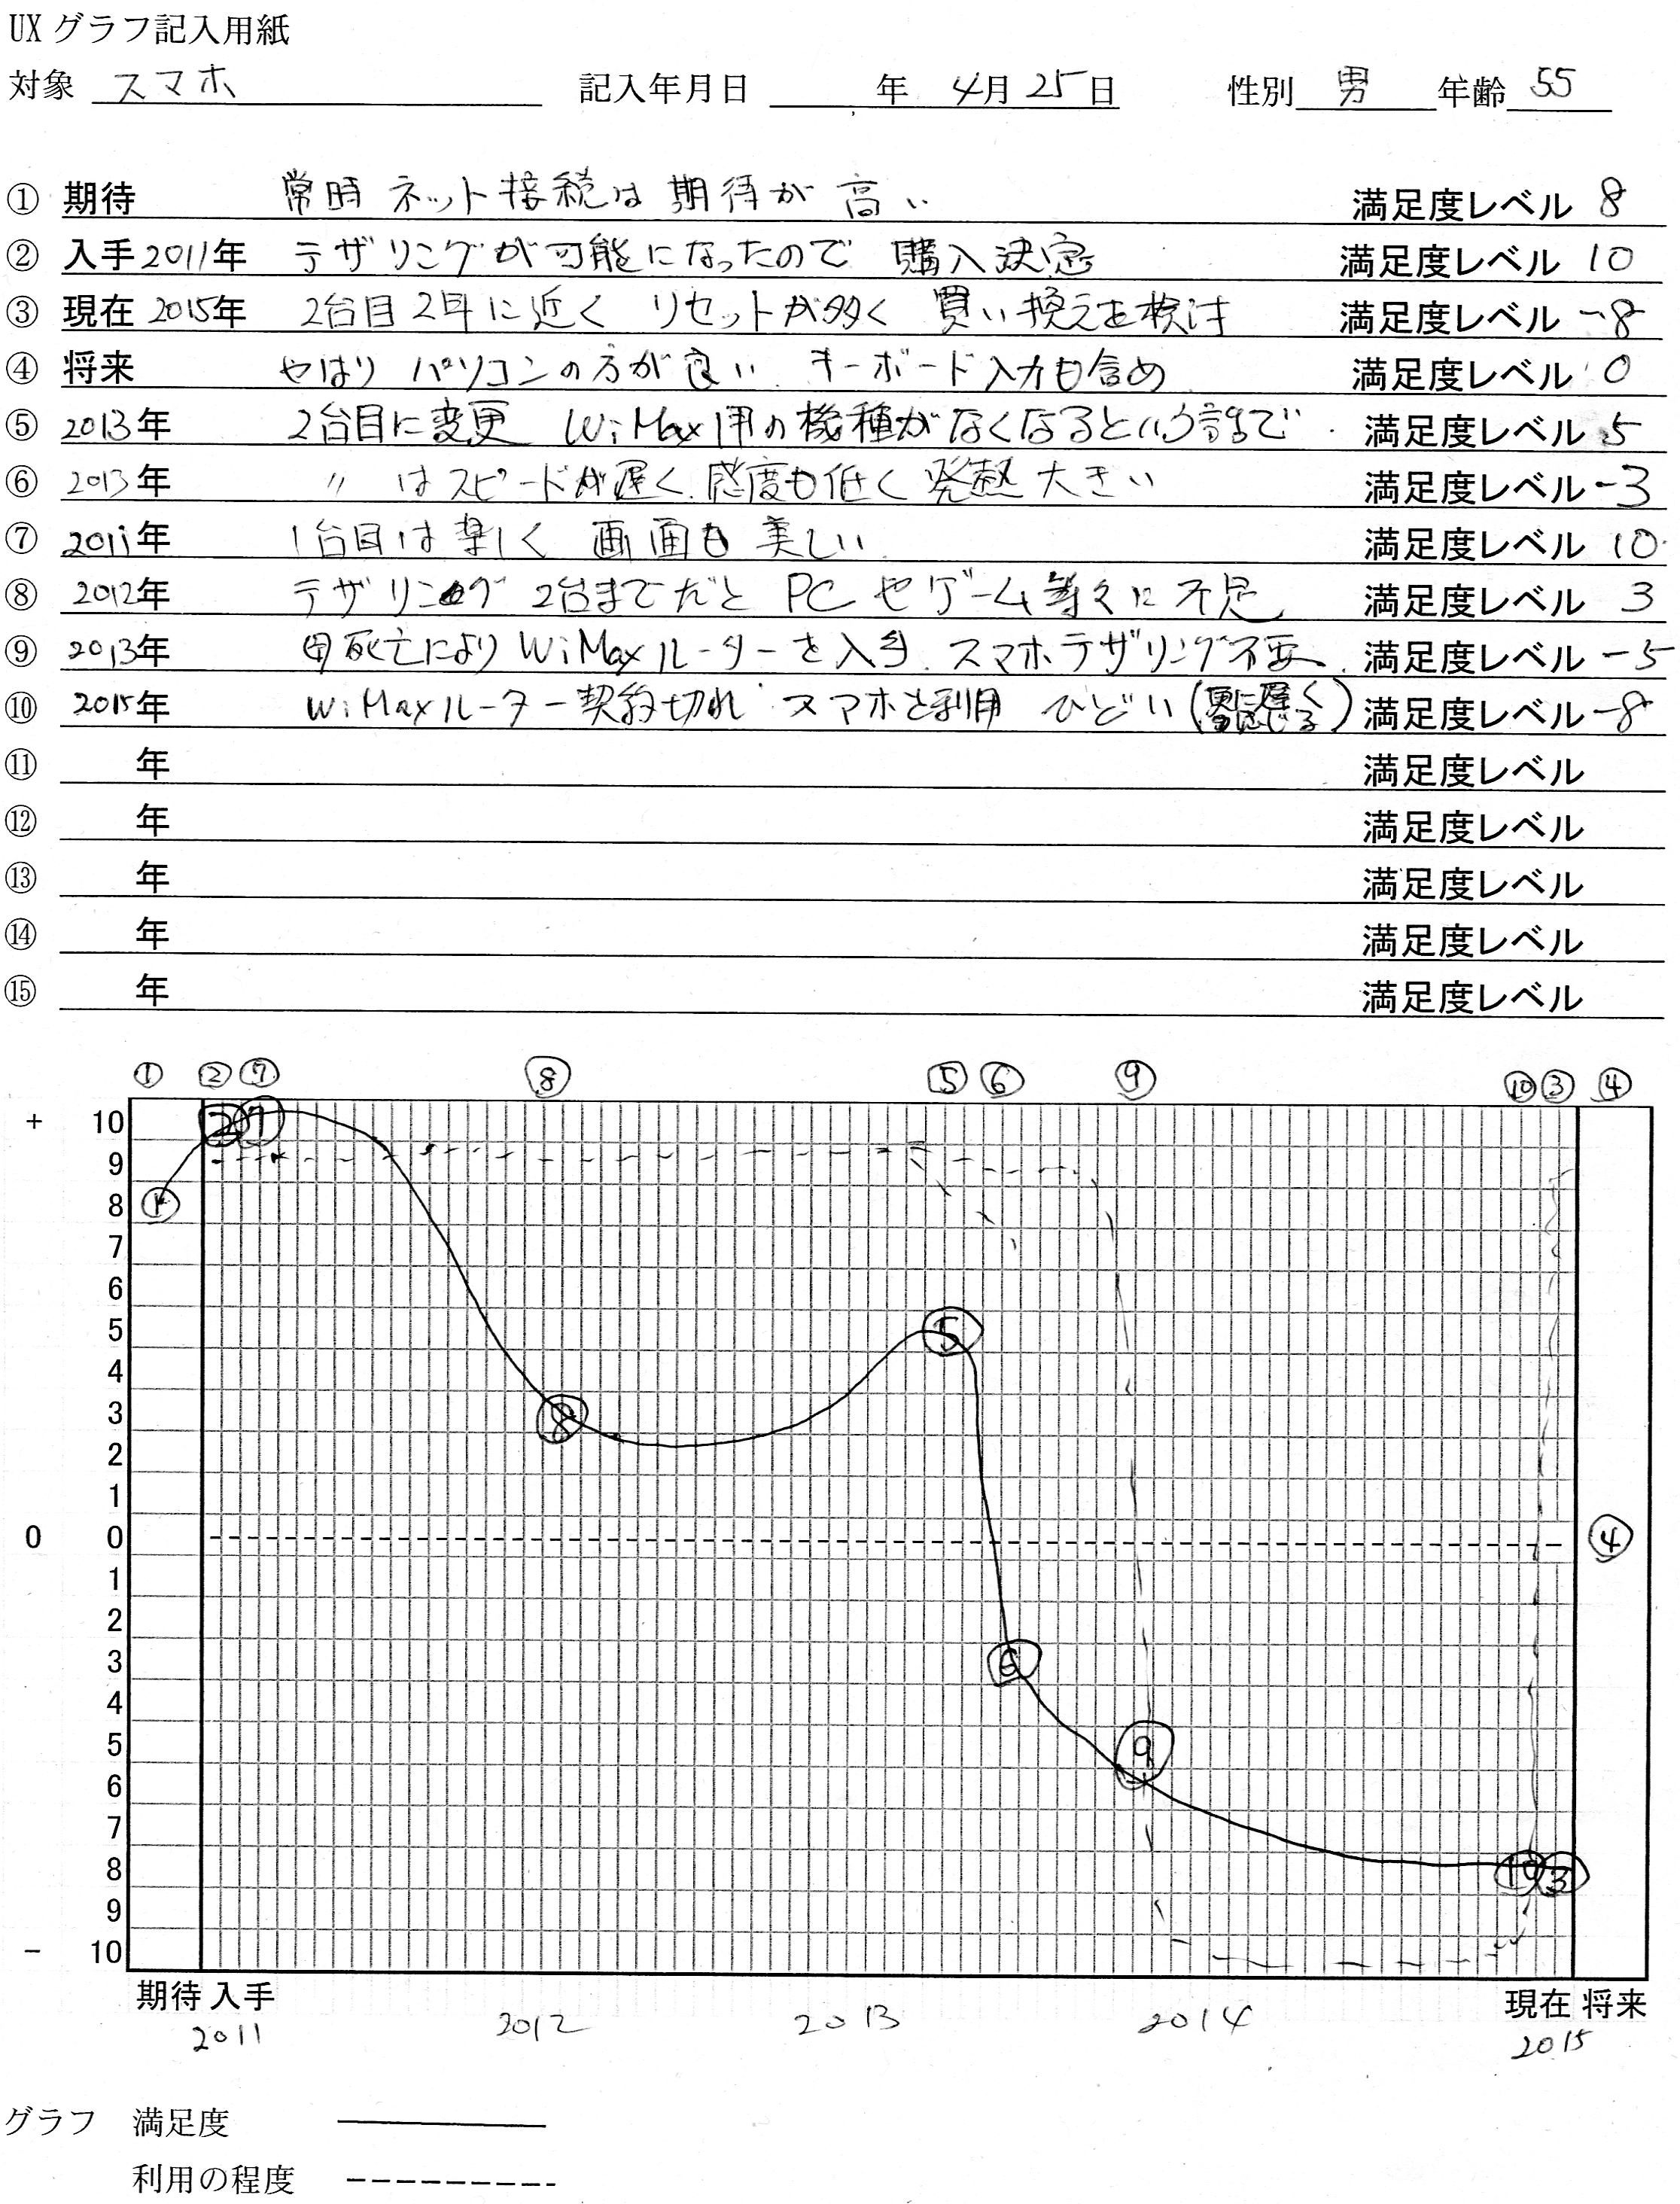 UXグラフ記入用紙
対象 スマホ 記入年月日 年 4月25日 性別 男 年齢 55
① 期待 常時ネット接続は期待が高い 満足度レベル 8
② 入手2011年 テザリングが可能になったので 購入決定 満足度レベル 10
③ 現在2015年 2台目2年に近く リセットが多く 買い換えを検討 満足度レベル -8
④ 将来 やはり パソコンの方が良い キーボード入力も含め 満足度レベル 0
⑤ 2013年 2台目に変更 WiMax用の機種がなくなるという話で 満足度レベル 5
⑥ 2013年 〃 はスピードが遅く、感度も低く 発熱大きい 満足度レベル -3
⑦ 2011年 1台目は楽しく 画面も美しい 満足度レベル 10
⑧ 2012年 テザリング 2台までだと PCやゲーム等々に不足 満足度レベル 3
⑨ 2013年 死亡により WiMaxルーターを入手、スマホテザリング不要 満足度レベル -5
⑩ 2015年 WiMaxルーター契約切れ スマホを利用 ひどい (更に遅く感じる) 満足度レベル -8
⑪ 年 満足度レベル
⑫ 年 満足度レベル
⑬ 年 満足度レベル
⑭ 年 満足度レベル
⑮ 年 満足度レベル
① ② ⑦ ⑧ ⑤ ⑥ ⑨ ⑩ ③ ④
+ 10 ② ⑦
9
8 ①
7
6
5 ⑤
4
3 ⑧
2
1
0 0 ④
1
2
3 ⑥
4
5 ⑨
6
7
8 ⑩ ③
9
- 10
期待 入手 現在 将来
2011 2012 2013 2014 2015
グラフ 満足度
利用の程度